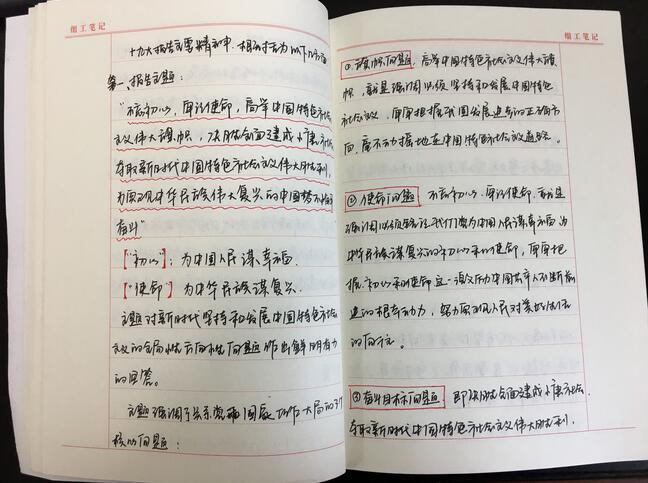 细工笔记
十九大报告主要精神, 相关讨论为以下几方面
第一、报告主题:
"不忘初心,牢记使命,高举中国特色社会
主义伟大旗帜,决胜全面建成小康社会,
夺取新时代中国特色社会主义伟大胜利,
为实现中华民族伟大复兴的中国梦不懈
奋斗"
【"初心"】:为中国人民谋幸福.
【"使命"】为中华民族谋复兴.
主题对新时代坚持和发展中国特色社会
主义的全局性方向性问题作出鲜明有力
的回答。
主题强调了关系党和国家工作大局的
核心问题:
细工笔记
①旗帜问题,高举中国特色社会主义伟大旗
帜,就是强调必须坚持和发展中国特色
社会主义,牢牢把握我国发展进步的正确方
向,毫不动摇地走中国特色社会主义道路.
②使命问题 不忘初心,牢记使命.就是
强调必须我们党为中国人民谋幸福,为
中华民族谋复兴的初心和使命,牢牢把
握初心和使命这一激励中国共产党人不断前
进的根本动力,努力实现人民对美好生活
的向往。
③奋斗目标问题 即决胜全面建成小康社会,
夺取新时代中国特色社会主义伟大胜利,